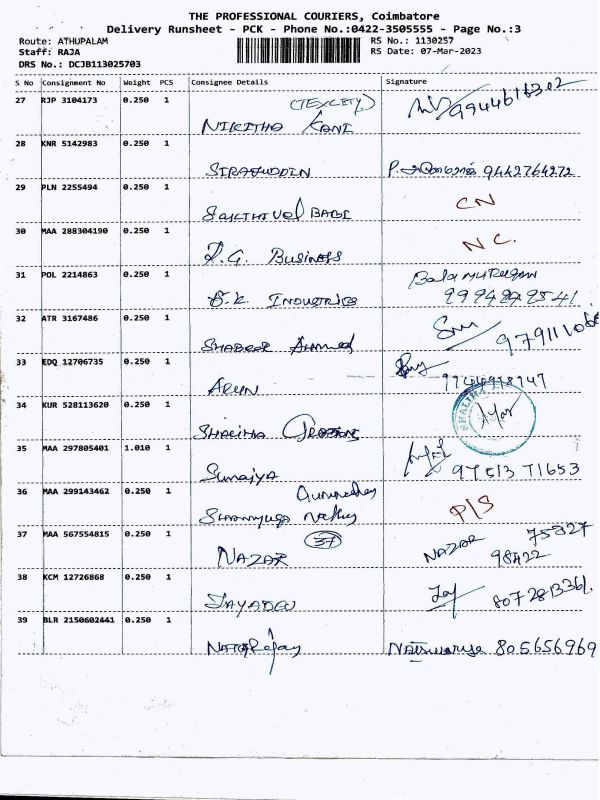 THE PROFESSIONAL COURIERS, Coimbatore
Delivery Runsheet - PCK - Phone No.:0422-3505555 - Page No.:3
Route: ATHUPALAM RS No.: 1130257
Staff: RAJA RS Date: 07-Mar-2023
DRS No.: DCJB113025703
S No Consignment No Weight PCS Consignee Details Signature
27 RJP 3104173 0.250 1 (TEXCITY)
NIKITHA KANI 9944616302
28 KNR 5142983 0.250 1
SIRAJUDDIN 9442764272
29 PLN 2255494 0.250 1
SAKTHIVEL BABU CN
30 MAA 288304190 0.250 1
P.G. BUSINESS NC.
31 POL 2214863 0.250 1 Balamurugan
S.K INDUSTRIES
32 ATR 3167486 0.250 1
SHABEER AHMED
33 EDQ 12706735 0.250 1
ARUN
34 KUR 528113620 0.250 1
SHALIHA
35 MAA 297805401 1.010 1
Sumaiya 97513 71653
36 MAA 299143462 0.250 1
P/S
37 MAA 567554815 0.250 1 37
NAZAR NAZAR 75827
98422
38 KCM 12726868 0.250 1
JAYADEV
39 BLR 2150602441 0.250 1
Natarajan 805656969